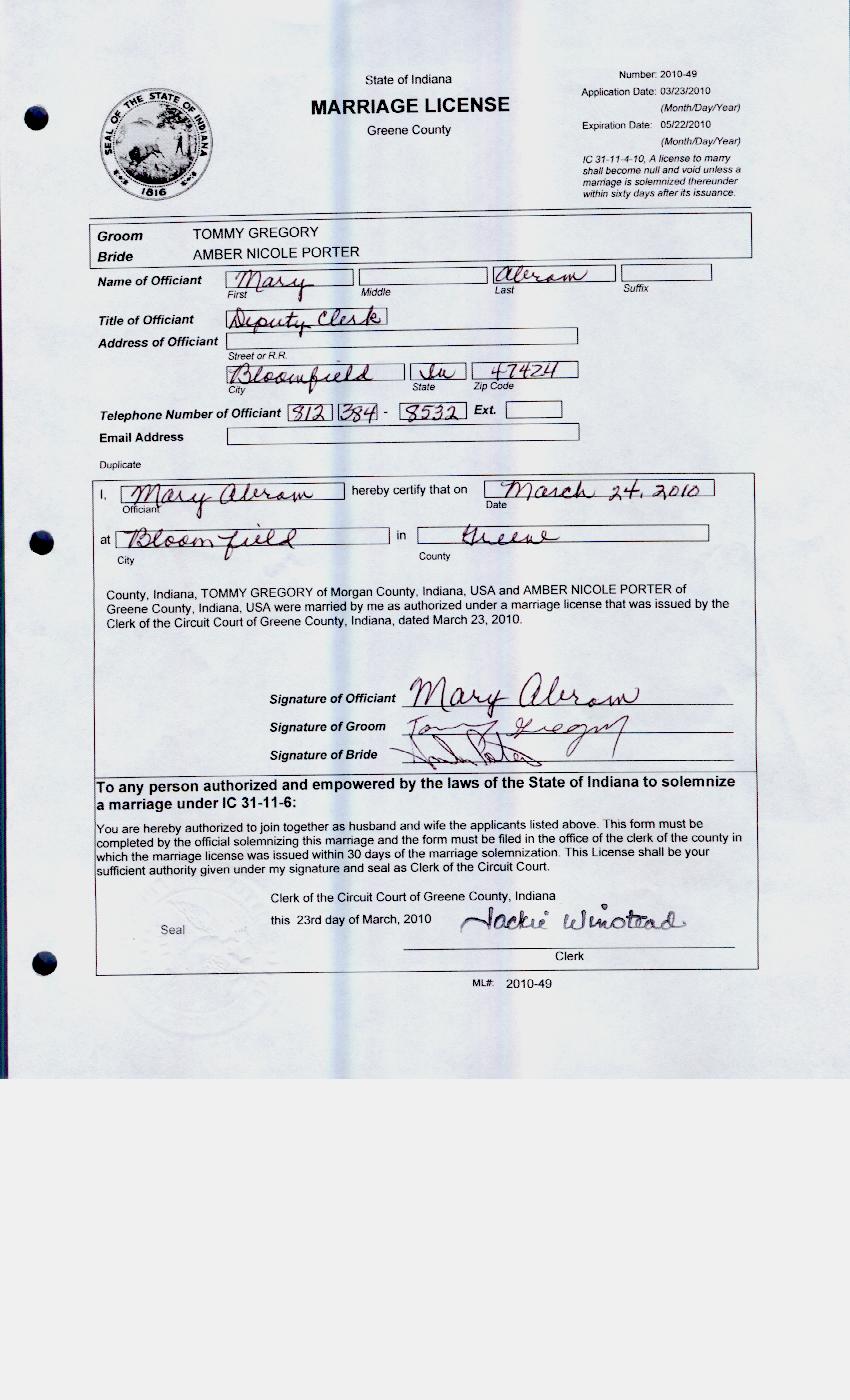 State of Indiana
MARRIAGE LICENSE
Greene County
Number: 2010-49
Application Date: 03/23/2010
(Month/Day/Year)
Expiration Date: 05/22/2010
(Month/Day/Year)
IC 31-11-4-10, A license to marry
shall become null and void unless a
marriage is solemnized thereunder
within sixty days after its issuance.
SEAL OF THE STATE OF INDIANA
1816
Groom TOMMY GREGORY
Bride AMBER NICOLE PORTER
Name of Officiant Mary Abram
First Middle Last Suffix
Title of Officiant Deputy Clerk
Address of Officiant
Street or R.R.
Bloomfield In 47424
City State Zip Code
Telephone Number of Officiant 812 384 - 8532 Ext.
Email Address
Duplicate
I, Mary Abram hereby certify that on March 24, 2010
Officiant Date
at Bloomfield in Greene
City County
County, Indiana, TOMMY GREGORY of Morgan County, Indiana, USA and AMBER NICOLE PORTER of
Greene County, Indiana, USA were married by me as authorized under a marriage license that was issued by the
Clerk of the Circuit Court of Greene County, Indiana, dated March 23, 2010.
Signature of Officiant Mary Abram
Signature of Groom Tommy Gregory
Signature of Bride Porter
To any person authorized and empowered by the laws of the State of Indiana to solemnize
a marriage under IC 31-11-6:
You are hereby authorized to join together as husband and wife the applicants listed above. This form must be
completed by the official solemnizing this marriage and the form must be filed in the office of the clerk of the county in
which the marriage license was issued within 30 days of the marriage solemnization. This License shall be your
sufficient authority given under my signature and seal as Clerk of the Circuit Court.
Clerk of the Circuit Court of Greene County, Indiana
this 23rd day of March, 2010 Jackie Winstead
Seal
Clerk
ML#: 2010-49